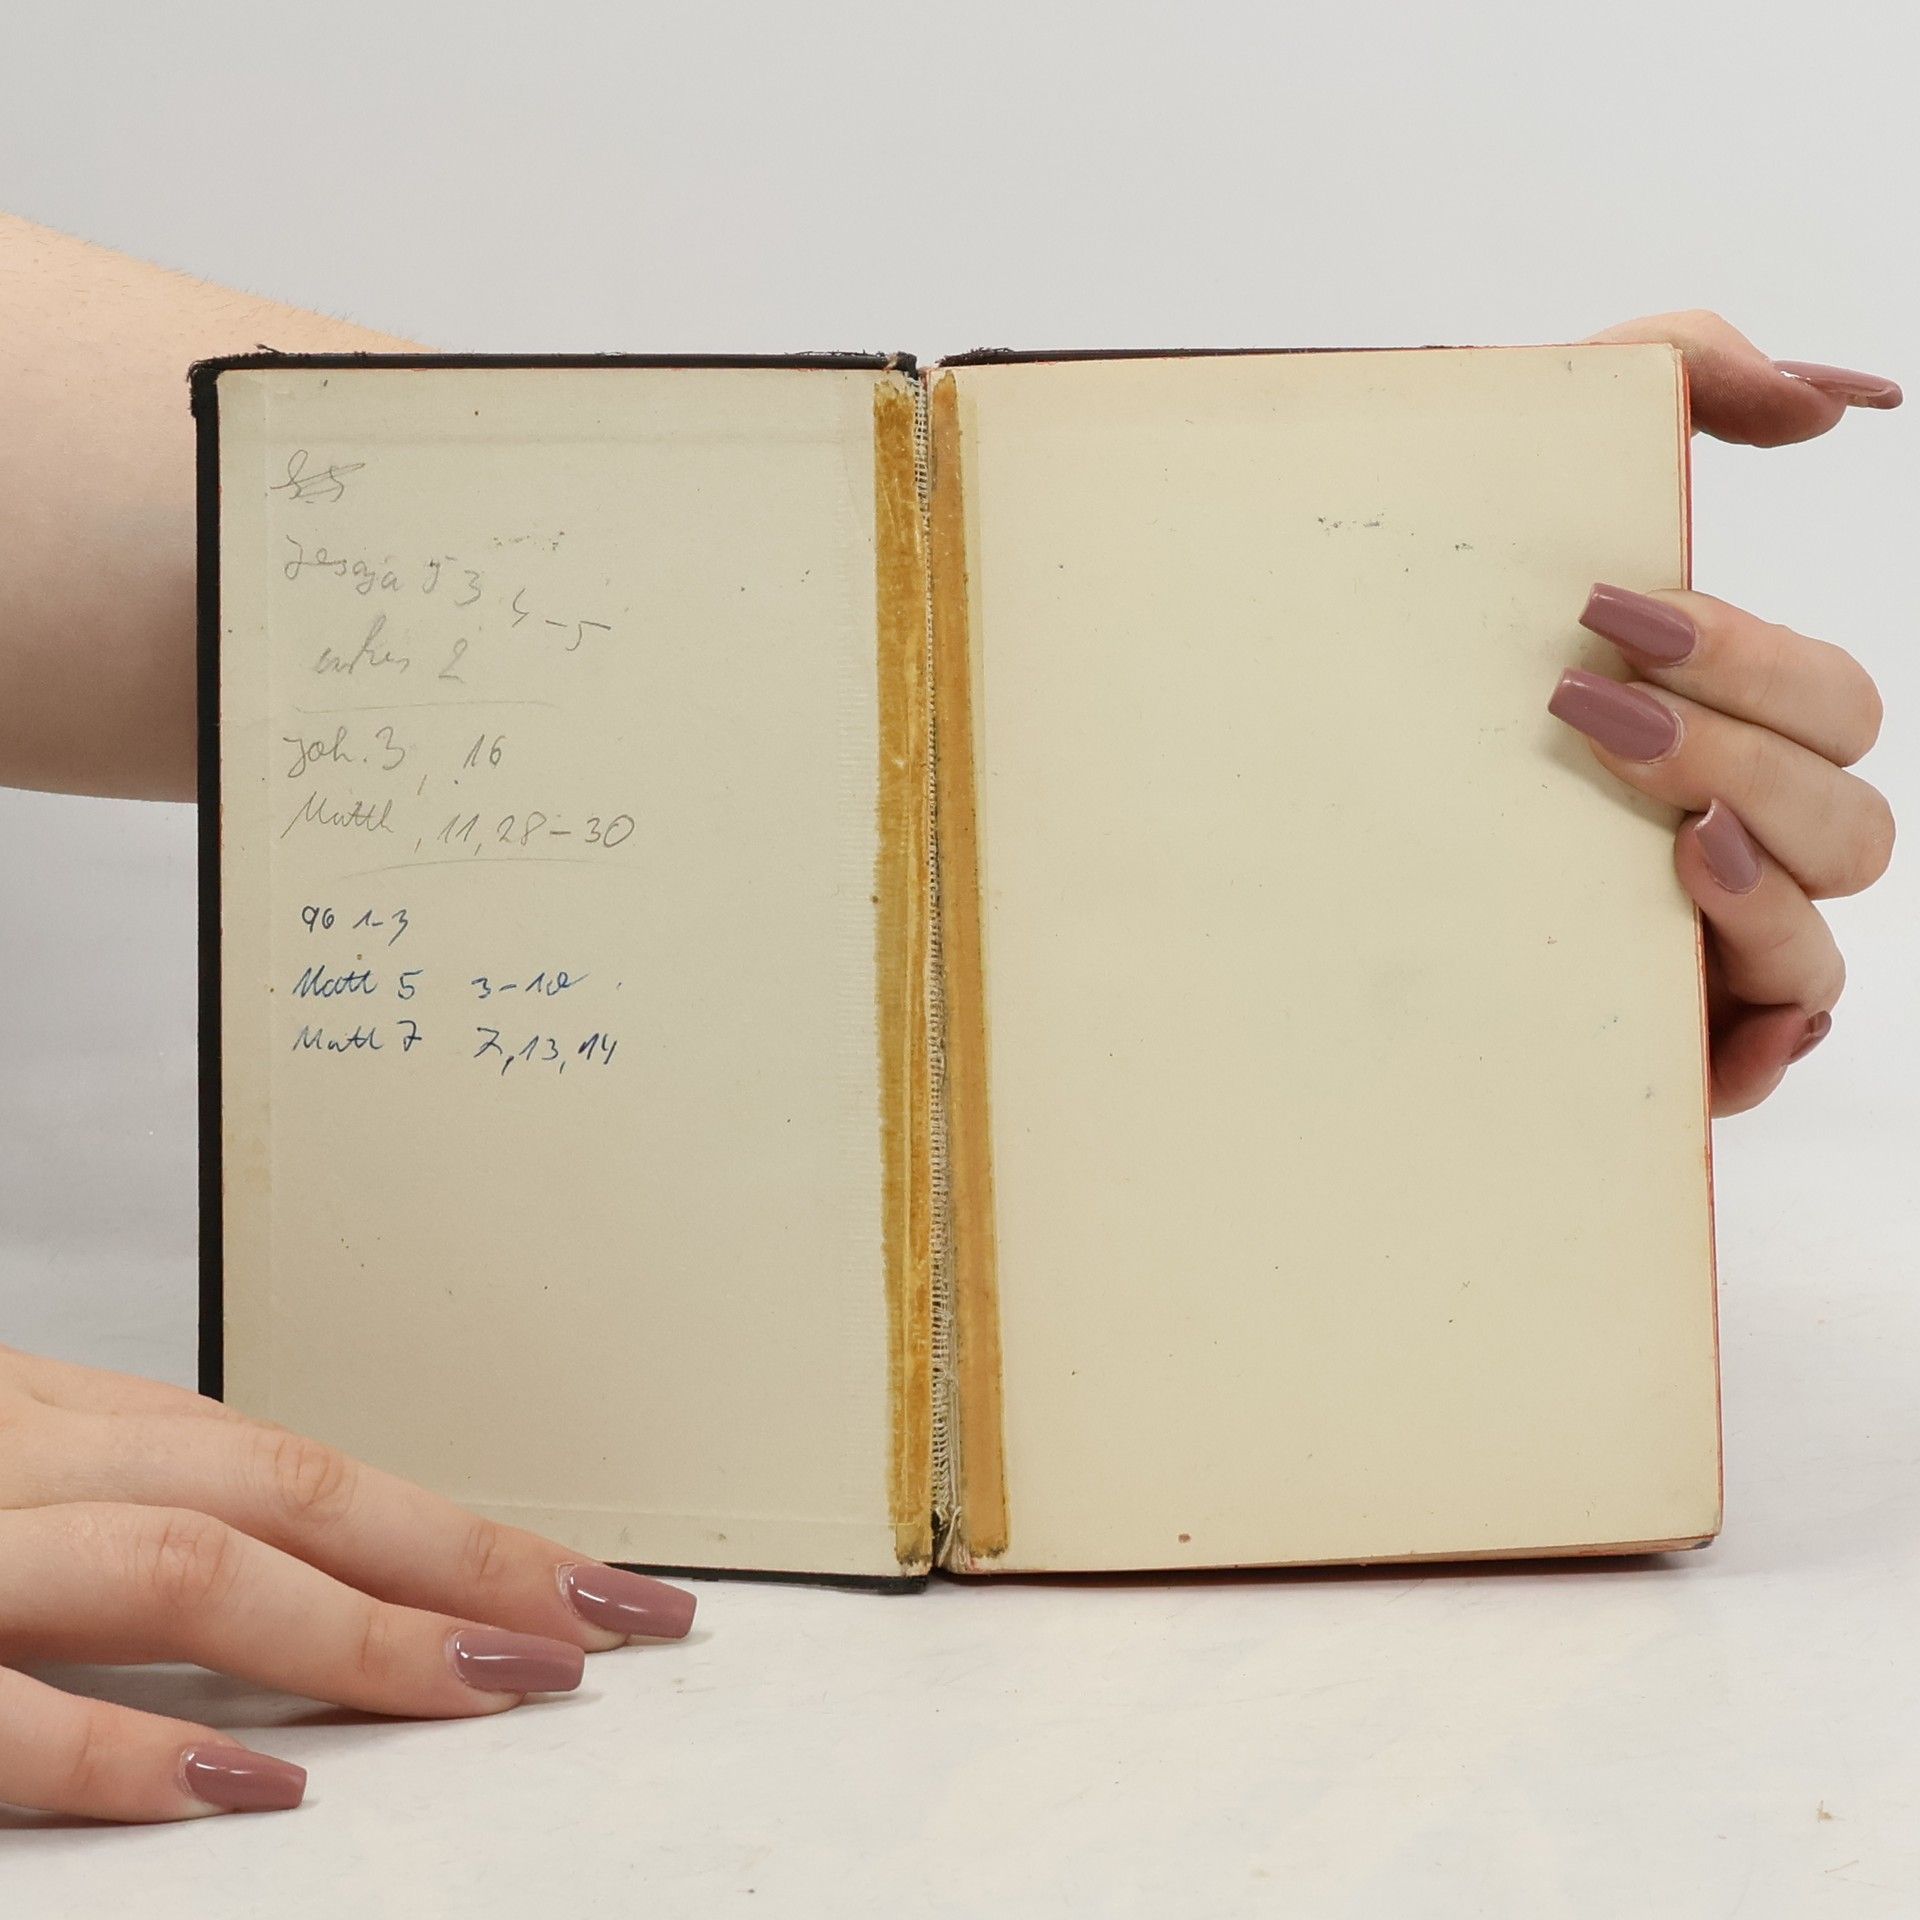 Jesaja 53 4-5
2
Joh. 3, 16
Matth, 11,28-30
96 1-3
Matt 5 3-10
Matt 7 7,13,14